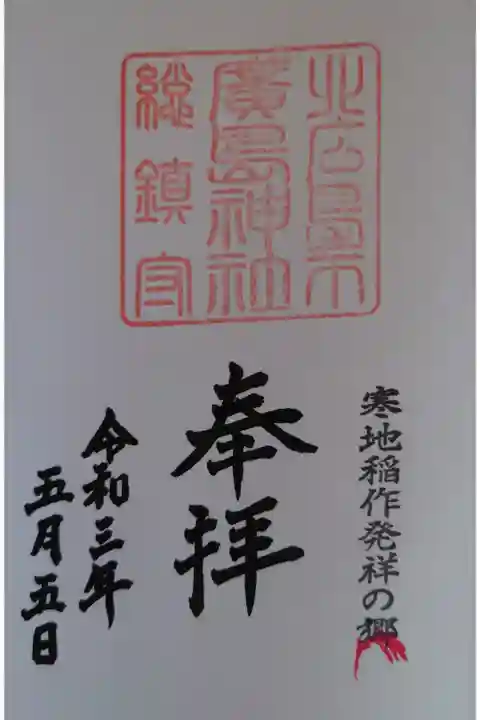 北広島市
廣島神社
総鎮守
寒地稲作発祥の郷
奉拝
令和三年
五月五日